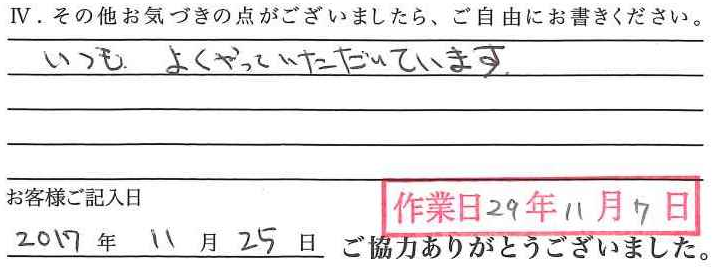 Ⅳ．その他お気づきの点がございましたら、ご自由にお書きください。
いつも よくやっていただいています.
お客様ご記入日
作業日29年11月7日
2017年 11月25日 ご協力ありがとうございました。